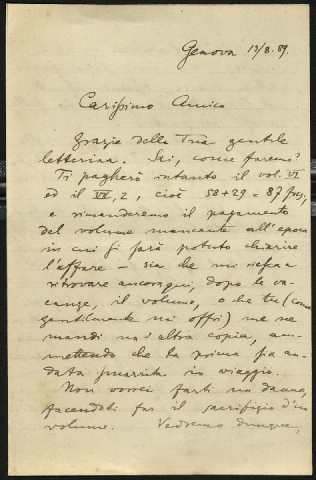 Genova 13/8.89.
Carissimo Amico
Grazie della Tua gentile
letterina. Sai, come faremo?
Ti pagherò intanto il vol. VI
ed il VII, 2, cioè 58+29 = 87 frcs,
e rimanderemo il pagamento
del volume mancante all'epoca
in cui si sarà potuto chiarire
l'affare — sia che mi riesca a
ritrovare ancora qui, dopo le va-
canze, il volume, o che tu (come
gentilmente mi offri) me ne
mandi un'altra copia, am-
mettendo che la prima sia an-
data smarrita in viaggio.
Non vorrei farti un danno,
facendoti far il sacrifizio d'un
volume. Vedremo dunque,